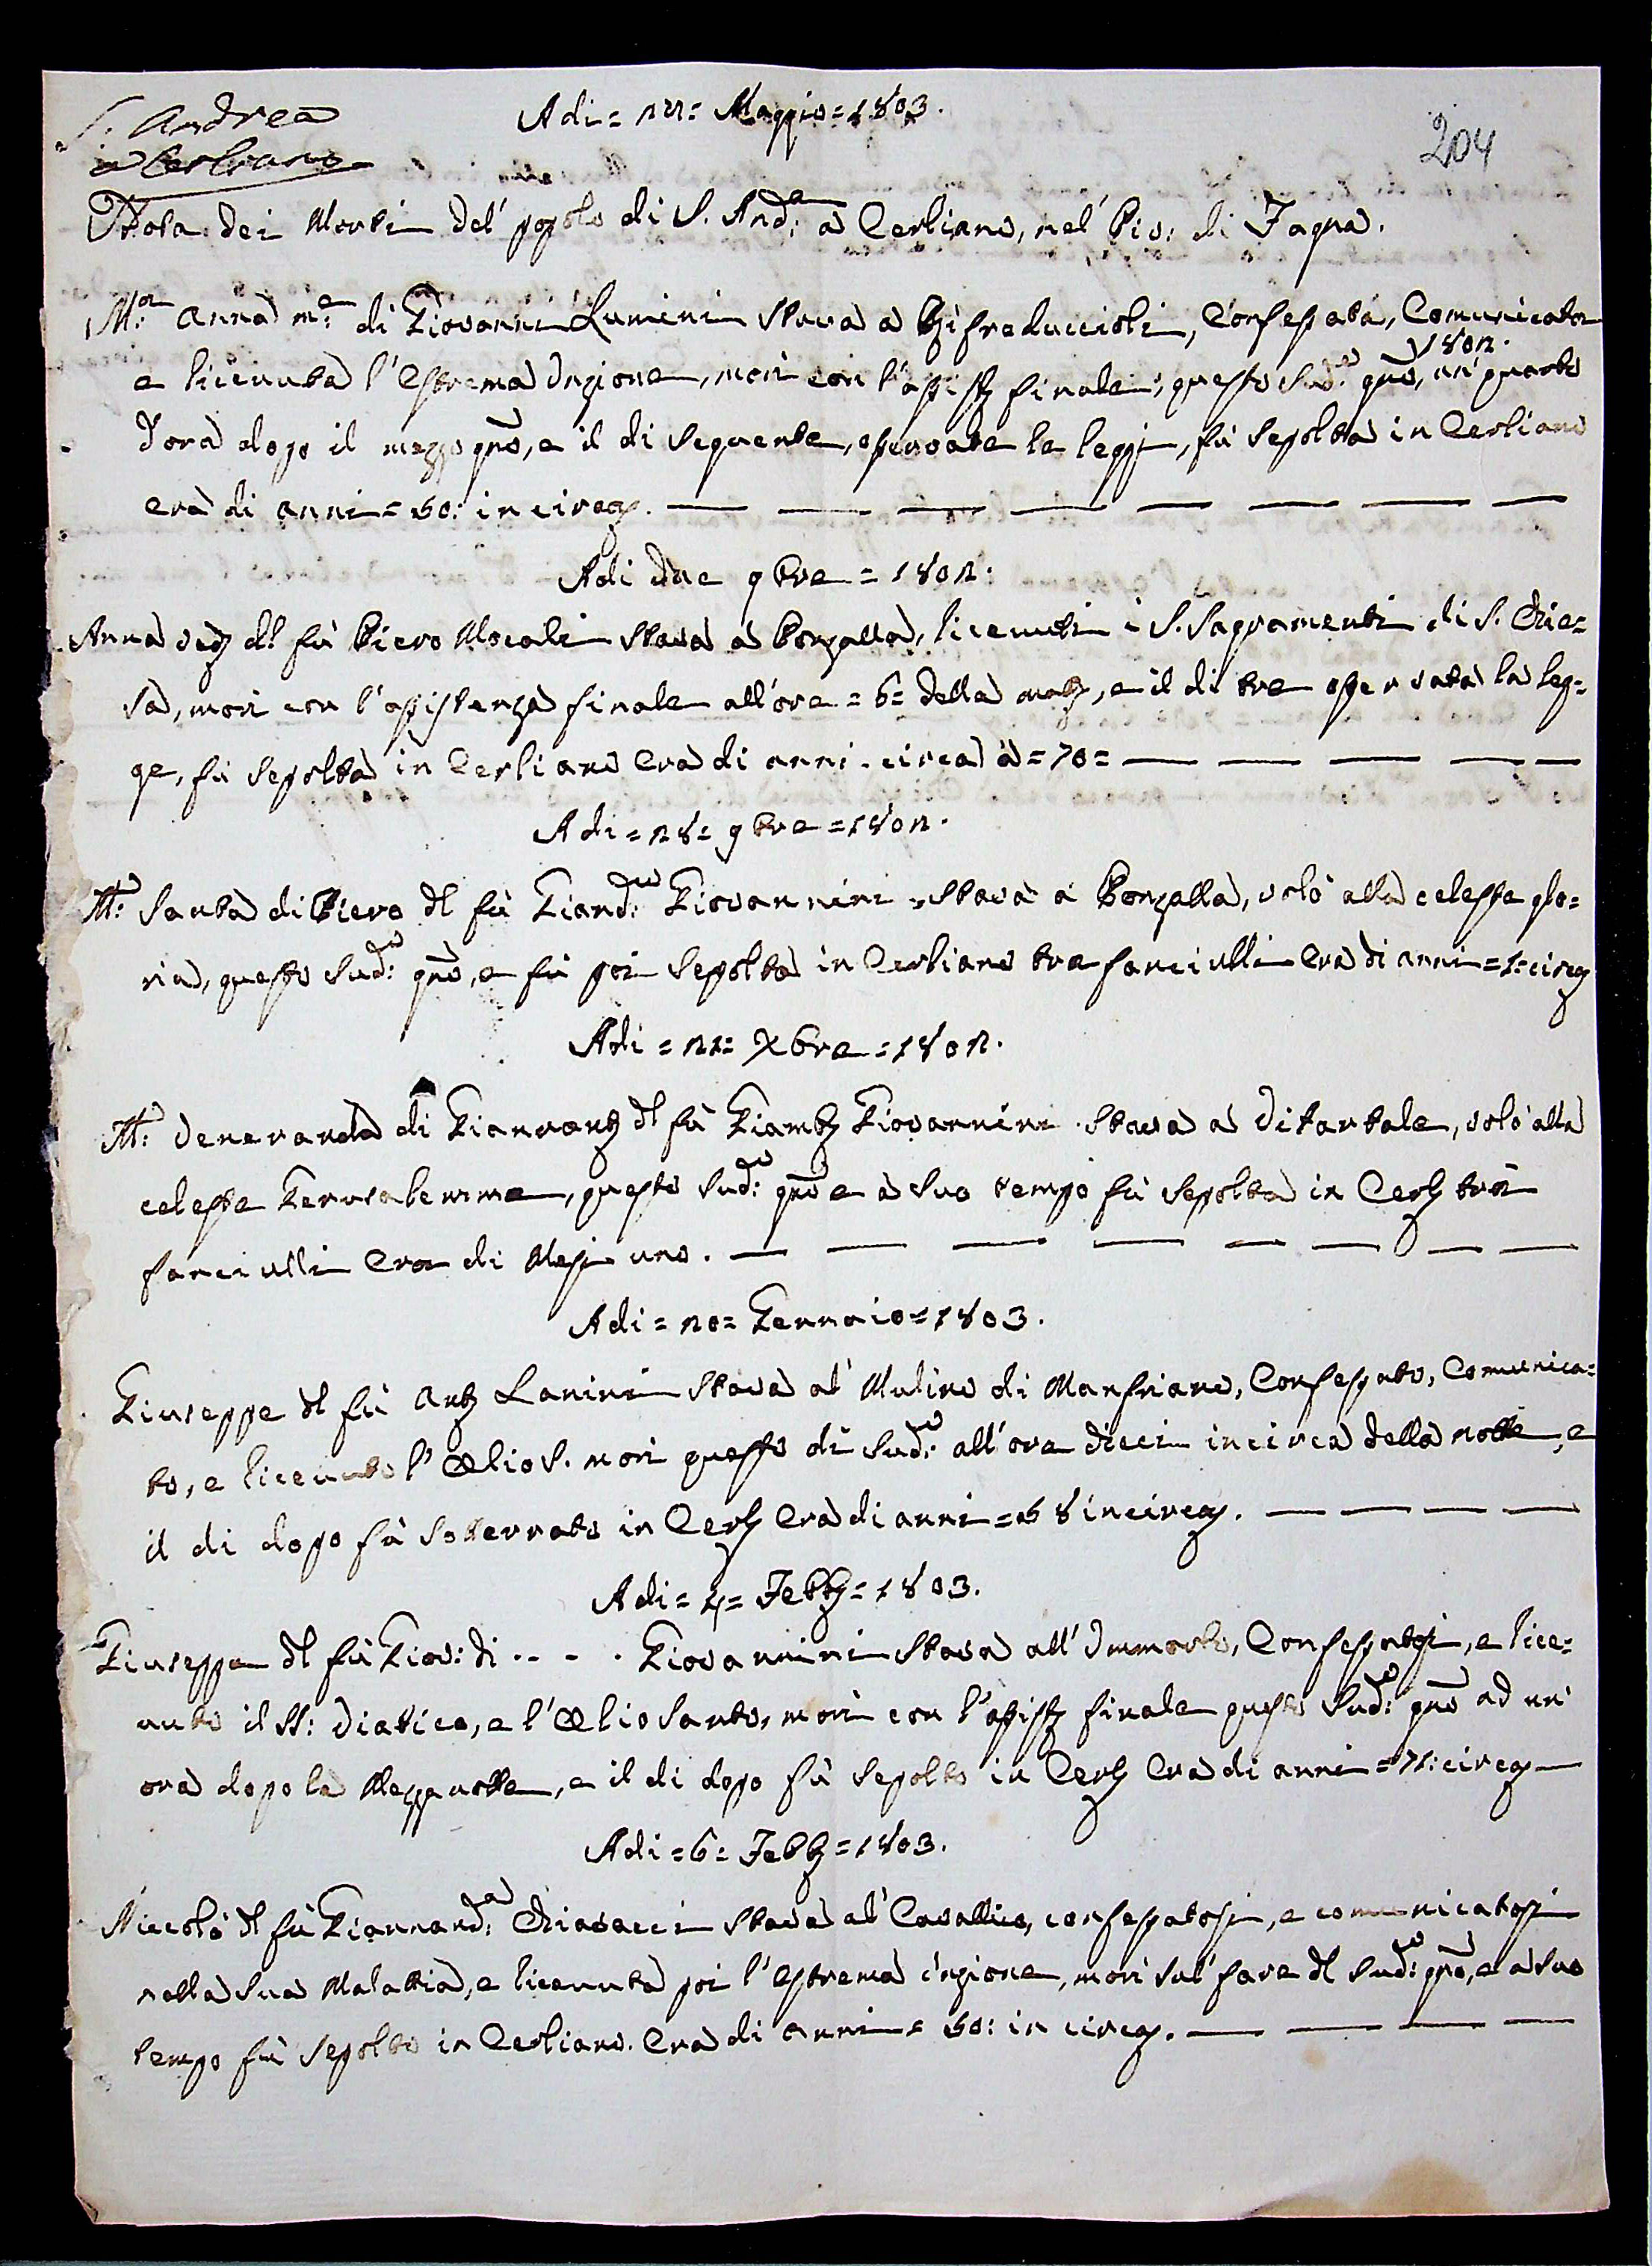 S. Andrea
a Cerliano
Adi = 22 = Maggio = 1803.
204
Nota dei Morti del' popolo di S. And:ª a Cerliano, nel' Pio: di Fagna.
M:ª Anna m:e di Giovanni Lumini stava a Confessata, Comunicata
1802.
e ricevuta l'Estrema Unzione, morì con l'assistz finale, questo Sud:º gnõ, un' quarto
d'ora dopo il mezzo gnõ, e il di seguente, osservate le leggi, fù sepolta in Cerliano
era di anni = 50: in circa. — — — — — — — —
Adi due 9bre = 1802:
Anna ved dl fù Piero Mocali stava a Ponzalla, ricevuti i S. Sagramenti di S. Chie=
sa, morì con l'assistenza finale all'ore = 6 = della, e il di tre osservata la leg=
ge, fù sepolta in Cerliano era di anni circa à = 70 = — — — — —
Adi = 28 = 9bre = 1802.
M:ª Santa di Piero dl fù Giand:º Giovannini stava a Ponzalla, volò alla celeste glo=
ria, questo Sud:º gnõ, e fù poi sepolta in Cerliano tra fanciulli era di anni = 1: circa
Adi = 21 = Xbre = 1802.
M:ª Veneranda di Giannantº dl fù Giambª Giovannini stava a Vitartale, volò alla
celeste Gerusalemme, questo Sud:º gnõ e a suo tempo fù sepolta in Cerlº tra
fanciulli era di Mesi uno. — — — — — — — —
Adi = 20 = Gennaio = 1803.
Giuseppe dl fù Antº Lanini stava al' Mulino di Manfriano, Confessato, Comunica=
to, e ricevuto l'Olio S. morì questo di Sud:º all'ora dieci in circa della notte, e
il di dopo fù sotterrato in Cerlº era di anni = 58 in circa. — — — —
Adi = 4 = Febbº = 1803.
Giuseppe dl fù Giov: di . . . . Giovannini stava all' Confessatosi, e rice=
vuto il SS: Viatico, e l'Olio Santo, morì con l'assistz finale questo Sud:º gnõ ad un'
ora dopo la Mezzanotte, e il di dopo fù sepolto in Cerlº era di anni = 71: circa —
Adi = 6 = Febbº = 1803.
Niccolò dl fù Giannand:ª Chiavacci stava al' Cavallico, confessatosi, e comunicatosi
nella sua Malattia, e ricevuta poi l'estrema unzione, morì sul' fare dl Sud:º gnõ, e a suo
tempo fù sepolto in Cerliano. era di anni = 50: in circa. — — — —